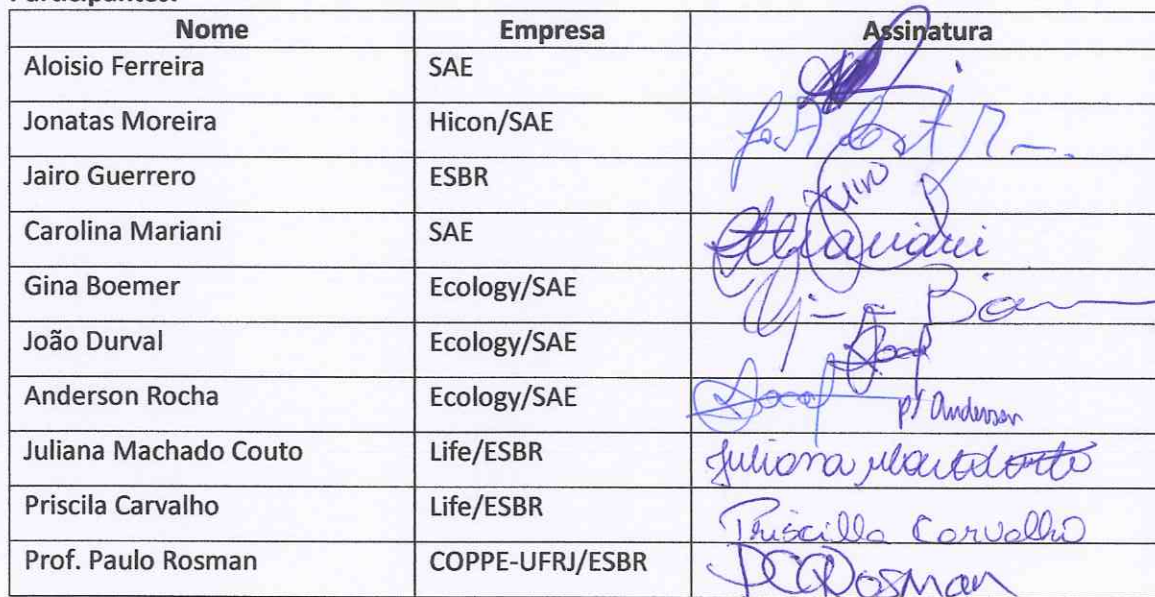 Participantes:
Nome Empresa Assinatura
Aloisio Ferreira SAE
Jonatas Moreira Hicon/SAE
Jairo Guerrero ESBR
Carolina Mariani SAE
Gina Boemer Ecology/SAE
João Durval Ecology/SAE
Anderson Rocha Ecology/SAE p/ Anderson
Juliana Machado Couto Life/ESBR Juliana
Priscila Carvalho Life/ESBR Priscilla Carvalho
Prof. Paulo Rosman COPPE-UFRJ/ESBR PCCRosman